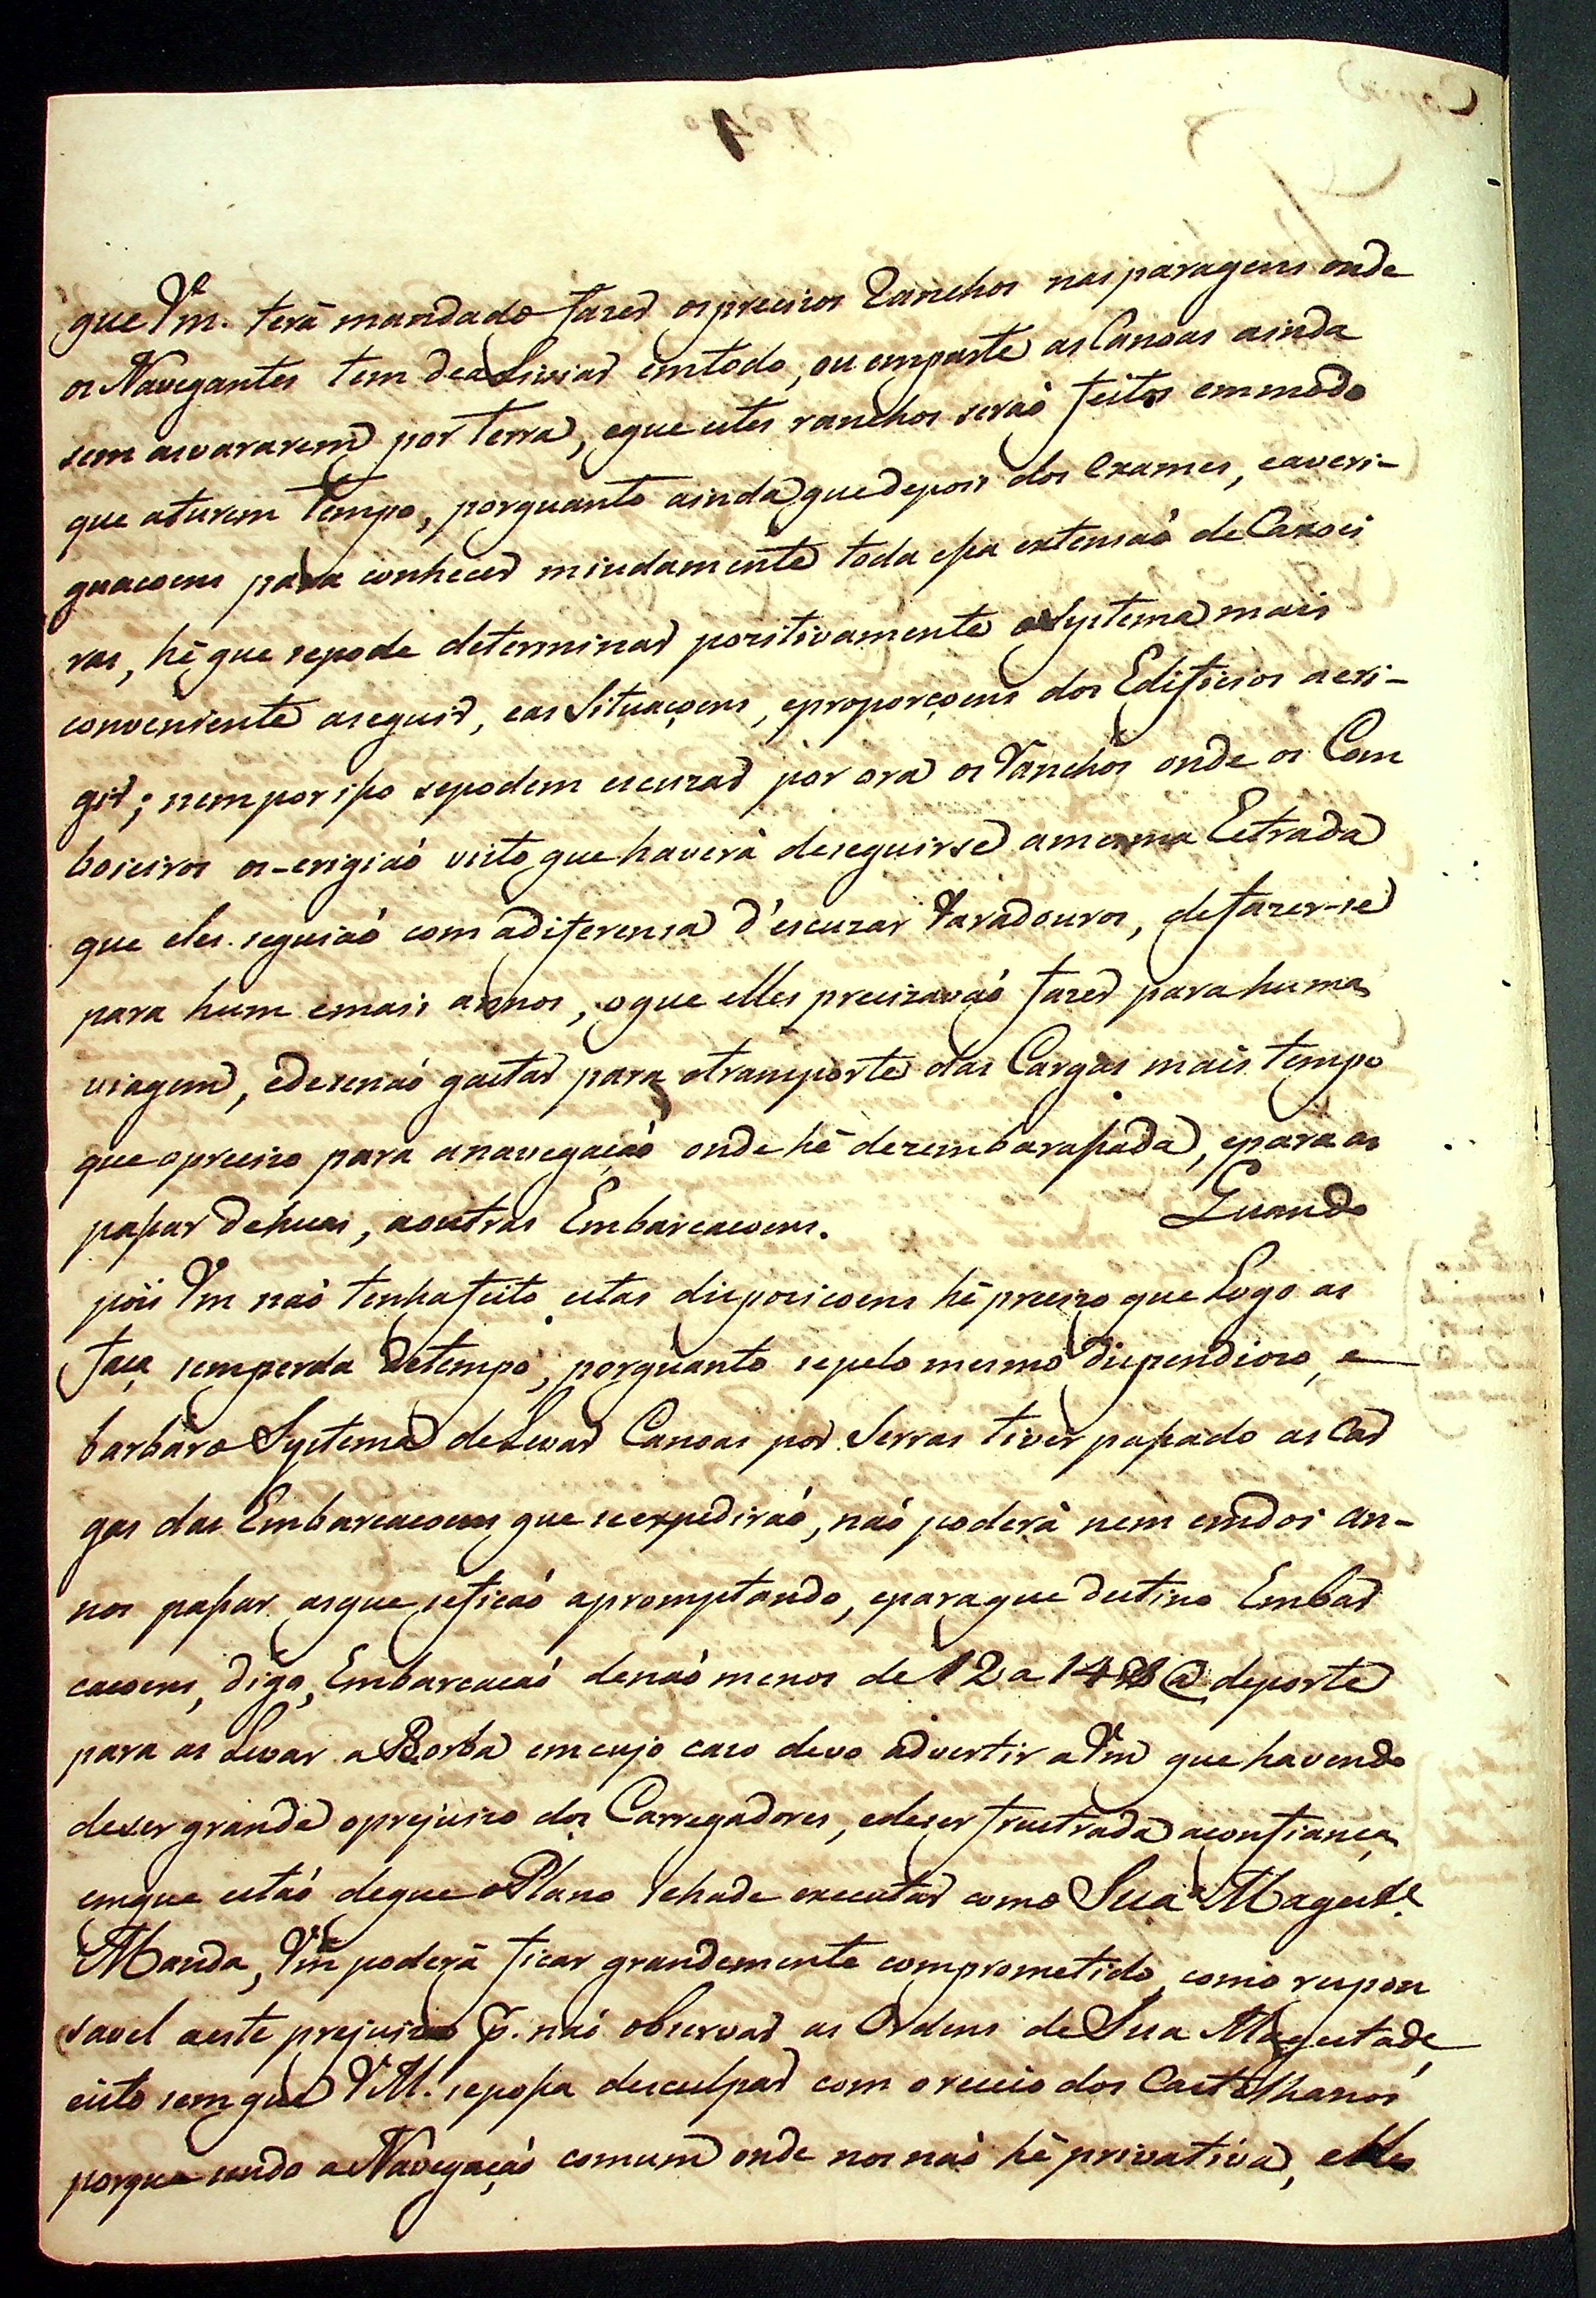 que Vm. terá mandado fazer os precizos Ranchos nas paragens onde
os Navegantes tem de aliviar em todo, ou em parte as Canoas ainda
sem as vararem por terra, e que estes ranchos serão feitos em modo
que aturem tempo, porquanto ainda que depois dos Exames, e averi-
guacoens para conhecer miudamente toda essa extensaó de Caxoei
ras, hé que se pode determinar pozitivamente o Systema mais
conveniente a seguir, e as Situaçoens, e proporçoens dos Edificios a eri-
gir; nem por isso se podem escuzar por ora os Ranchos onde os Com
boieiros os-erigiaó visto que haverá de seguirse a mesma Estrada
que eles seguiaó com a diferensa d'escuzar Varadouros, de fazer-se
para hum e mais annos, o que elles precizavaó fazer para huma
viagem, e de se naó gastar para o transporte das Cargas mais tempo
que o precizo para a navegaçaó onde hé dezembarassada, e para as
passar de huas, a outras Embarcacoens. Quando
pois Vm naó tenha feito estas dispozicoens hé precizo que Logo as
faça sem perda de tempo, porquanto se pelo mesmo dispendiozo, e
barbaro Systema de Levar Canoas por Serras tiver passado as Car
gas das Embarcacoens que se expediraó, naó poderá nem em dois an-
nos passar as que se ficaó apromptando, e para que destino Embar
cacoens, digo, Embarcacaó de naó menos de 12 a 14 @ de porte
para as Levar a Borba em cujo cazo devo advertir a Vm que havendo
de ser grande o prejuizo dos Carregadores, e de ser frustrada a confiança
em que estaó de que o Plano se hade executar como Sua Magest.e
Manda, Vm poderá ficar grandemente comprometido, como respon
savel a este prejuizo p. naó observar as Ordens de Sua Magestade,
e isto sem que VM. se possa desculpar com o receio dos Castelhanos
porque sendo a Navegaçaó comum onde nos naó hé privativa, elles